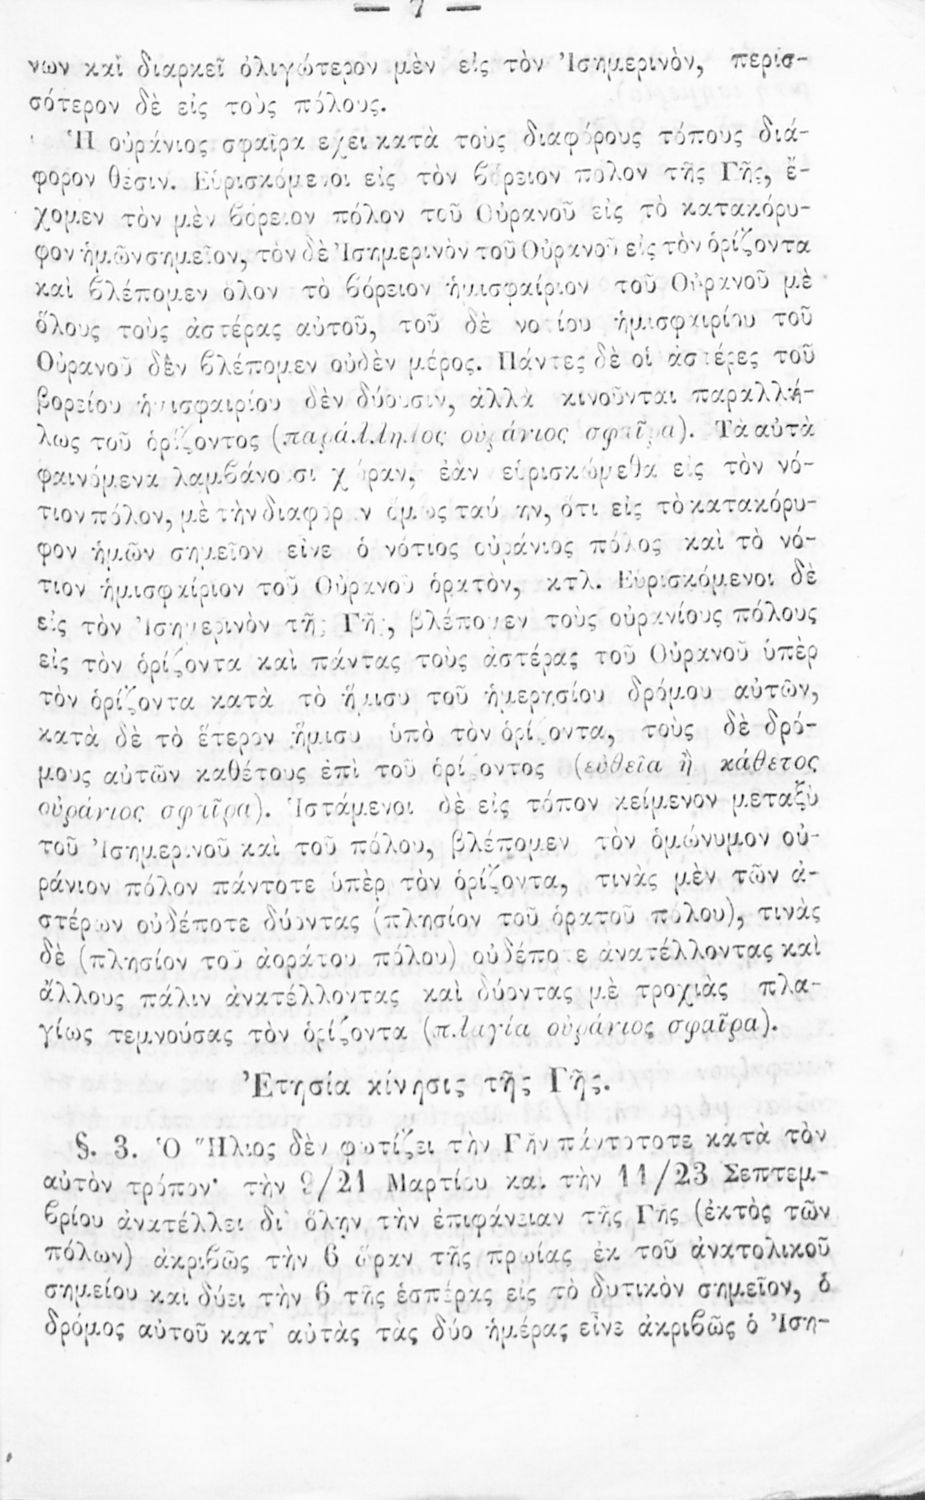 — 7 —
νων καὶ διαρκεῖ ὀλιγώτερον μὲν εἰς τὸν Ἰσημερινὸν, περισ-
σότερον δὲ εἰς τοὺς πόλους.
Ἡ οὐράνιος σφαῖρα ἔχει κατὰ τοὺς διαφόρους τόπους διά-
φορον θέσιν. Εὑρισκόμενοι εἰς τὸν βόρειον πόλον τῆς Γῆς, ἔ-
χομεν τὸν μὲν βόρειον πόλον τοῦ Οὐρανοῦ εἰς τὸ κατακόρυ-
φον ἡμῶν σημεῖον, τὸν δὲ Ἰσημερινὸν τοῦ Οὐρανοῦ εἰς τὸν ὁρίζοντα
καὶ βλέπομεν ὅλον τὸ βόρειον ἡμισφαίριον τοῦ Οὐρανοῦ μὲ
ὅλους τοὺς ἀστέρας αὐτοῦ, τοῦ δὲ νοτίου ἡμισφαιρίου τοῦ
Οὐρανοῦ δὲν βλέπομεν οὐδὲν μέρος. Πάντες δὲ οἱ ἀστέρες τοῦ
βορείου ἡμισφαιρίου δὲν δύουσιν, ἀλλὰ κινοῦνται παραλλή-
λως τοῦ ὁρίζοντος (παράλληλος οὐράνιος σφαῖρα). Τὰ αὐτὰ
φαινόμενα λαμβάνουσι χώραν, ἐὰν εὑρισκώμεθα εἰς τὸν νό-
τιον πόλον, μὲ τὴν διαφορὰν ὅμως ταύτην, ὅτι εἰς τὸ κατακόρυ-
φον ἡμῶν σημεῖον εἶνε ὁ νότιος οὐράνιος πόλος καὶ τὸ νό-
τιον ἡμισφαίριον τοῦ Οὐρανοῦ ὁρατὸν, κτλ. Εὑρισκόμενοι δὲ
εἰς τὸν Ἰσημερινὸν τῆς Γῆς, βλέπομεν τοὺς οὐρανίους πόλους
εἰς τὸν ὁρίζοντα καὶ πάντας τοὺς ἀστέρας τοῦ Οὐρανοῦ ὑπὲρ
τὸν ὁρίζοντα κατὰ τὸ ἥμισυ τοῦ ἡμερησίου δρόμου αὐτῶν,
κατὰ δὲ τὸ ἕτερον ἥμισυ ὑπὸ τὸν ὁρίζοντα, τοὺς δὲ δρό-
μους αὐτῶν καθέτους ἐπὶ τοῦ ὁρίζοντος (εὐθεῖα ἢ κάθετος
οὐράνιος σφαῖρα). Ἱστάμενοι δὲ εἰς τόπον κείμενον μεταξὺ
τοῦ Ἰσημερινοῦ καὶ τοῦ πόλου, βλέπομεν τὸν ὁμώνυμον οὐ-
ράνιον πόλον πάντοτε ὑπὲρ τὸν ὁρίζοντα, τινὰς μὲν τῶν ἀ-
στέρων οὐδέποτε δύοντας (πλησίον τοῦ ὁρατοῦ πόλου), τινὰς
δὲ (πλησίον τοῦ ἀοράτου πόλου) οὐδέποτε ἀνατέλλοντας καὶ
ἄλλους πάλιν ἀνατέλλοντας καὶ δύοντας μὲ τροχιὰς πλα-
γίως τεμνούσας τὸν ὁρίζοντα (πλαγία οὐράνιος σφαῖρα).
Ἐτησία κίνησις τῆς Γῆς.
§. 3. Ὁ Ἥλιος δὲν φωτίζει τὴν Γῆν πάντοτοτε κατὰ τὸν
αὐτὸν τρόπον· τὴν 9/21 Μαρτίου καὶ τὴν 11/23 Σεπτεμ-
βρίου ἀνατέλλει δι' ὅλην τὴν ἐπιφάνειαν τῆς Γῆς (ἐκτὸς τῶν
πόλων) ἀκριβῶς τὴν 6 ὥραν τῆς πρωίας ἐκ τοῦ ἀνατολικοῦ
σημείου καὶ δύει τὴν 6 τῆς ἑσπέρας εἰς τὸ δυτικὸν σημεῖον, ὁ
δρόμος αὐτοῦ κατ' αὐτὰς τὰς δύο ἡμέρας εἶνε ἀκριβῶς ὁ Ἰση-